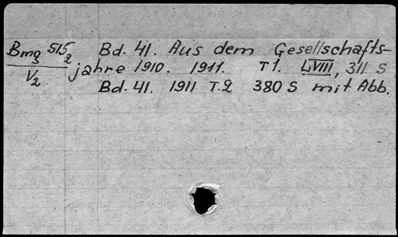 Bmg 515/2 Bd. 41. Aus dem Gesellschafts-
V2 jahre 1910. 1911. T1. LVIII, 311 S
Bd. 41. 1911 T.2 380 S mit Abb.